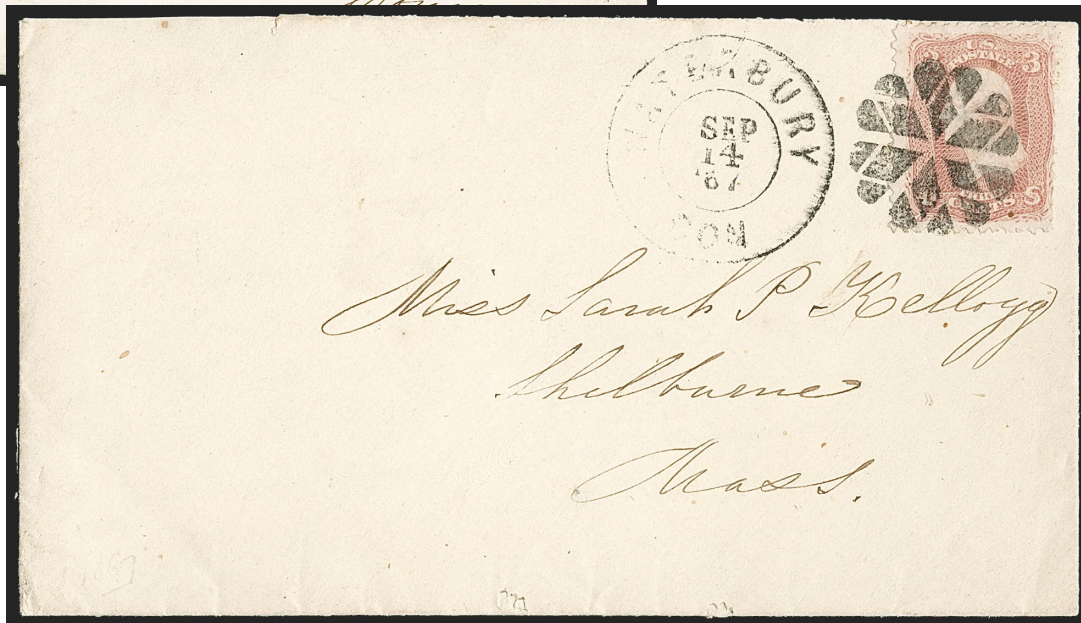 WATERBURY
SEP
14
'67
CON
U.S.
POSTAGE
3
CENTS
Miss Sarah P Kellogg
Shelburne
Mass.